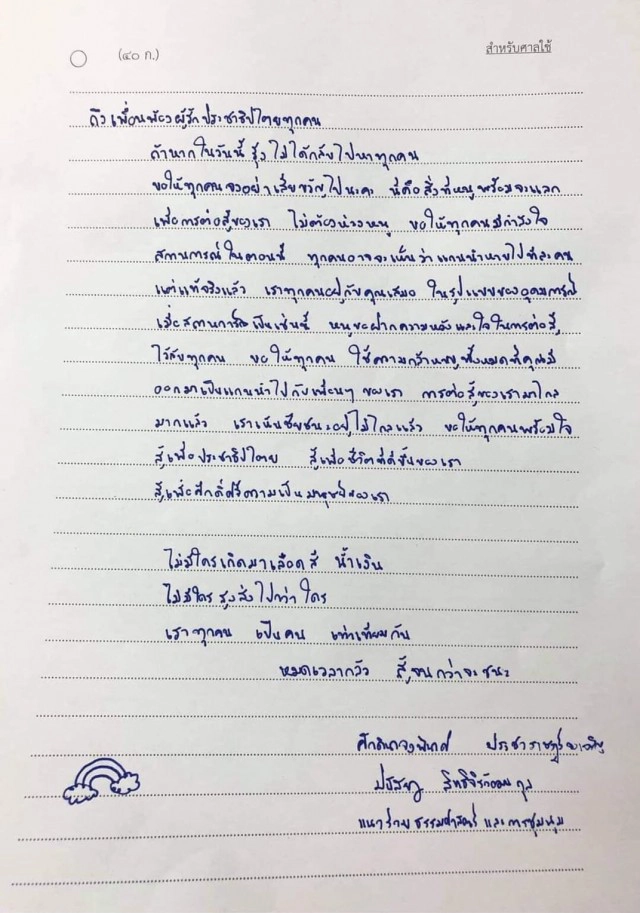 (๔๐ ก.)
สำหรับศาลใช้
ถึงเพื่อนพ้องผู้รักประชาธิปไตยทุกคน
ถ้าหากในวันนี้ รุ้งไม่ได้กลับไปหาทุกคน
ขอให้ทุกคนจงอย่าเสียขวัญไปนะคะ นี่คือสิ่งที่หนูพร้อมจะแลก
เพื่อการต่อสู้ของเรา ไม่ต้องห่วงหนู ขอให้ทุกคนมีกำลังใจ
สถานการณ์ในตอนนี้ ทุกคนอาจจะเห็นว่าแกนนำหายไปทีละคน
แต่แท้จริงแล้ว เราทุกคนอยู่กับคุณเสมอ ในรูปแบบของอุดมการณ์
เมื่อสถานการณ์เป็นเช่นนี้ หนูขอฝากความหวังและใจในการต่อสู้
ไว้กับทุกคน ขอให้ทุกคน ใช้ความกล้าหาญทั้งหมดที่คุณมี
ออกมาเป็นแกนนำไปกับเพื่อนๆ ของเรา การต่อสู้ของเรามาไกล
มากแล้ว เราเห็นชัยชนะอยู่ไม่ไกลแล้ว ขอให้ทุกคนพร้อมใจ
สู้เพื่อประชาธิปไตย สู้เพื่อชีวิตที่ดีขึ้นของเรา
สู้เพื่อศักดิ์ศรีความเป็นมนุษย์ของเรา
ไม่มีใครเกิดมาเลือดสี น้ำเงิน
ไม่มีใครสูงส่งไปกว่าใคร
เราทุกคน เป็นคน เท่าเทียมกัน
หมดเวลากลัว สู้จนกว่าจะชนะ
ศักดินาจงพินาศ ประชาราษฎร์จงเจริญ
ปนัสยา สิทธิจิรวัฒนกุล
แนวร่วมธรรมศาสตร์และการชุมนุม